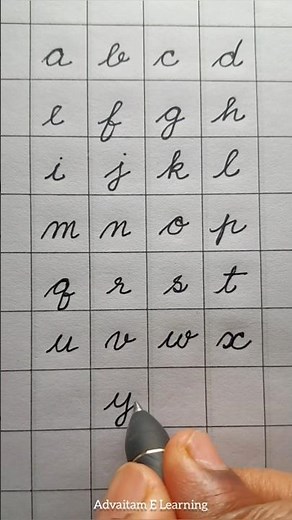 a b c d
e f g h
i j k l
m n o p
q r s t
u v w x
y
Advaitam E Learning